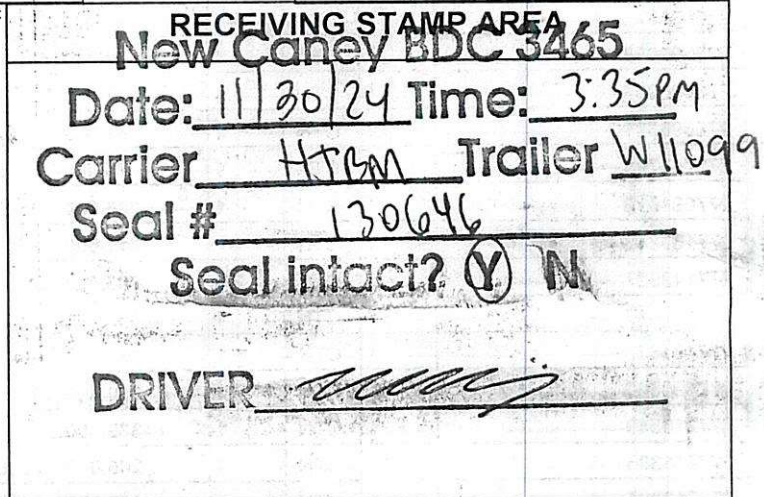 RECEIVING STAMP AREA
New Caney BDC 3465
Date: 11/30/24 Time: 3:35PM
Carrier HTBM Trailer W11099
Seal # 130646
Seal intact? Y N
DRIVER